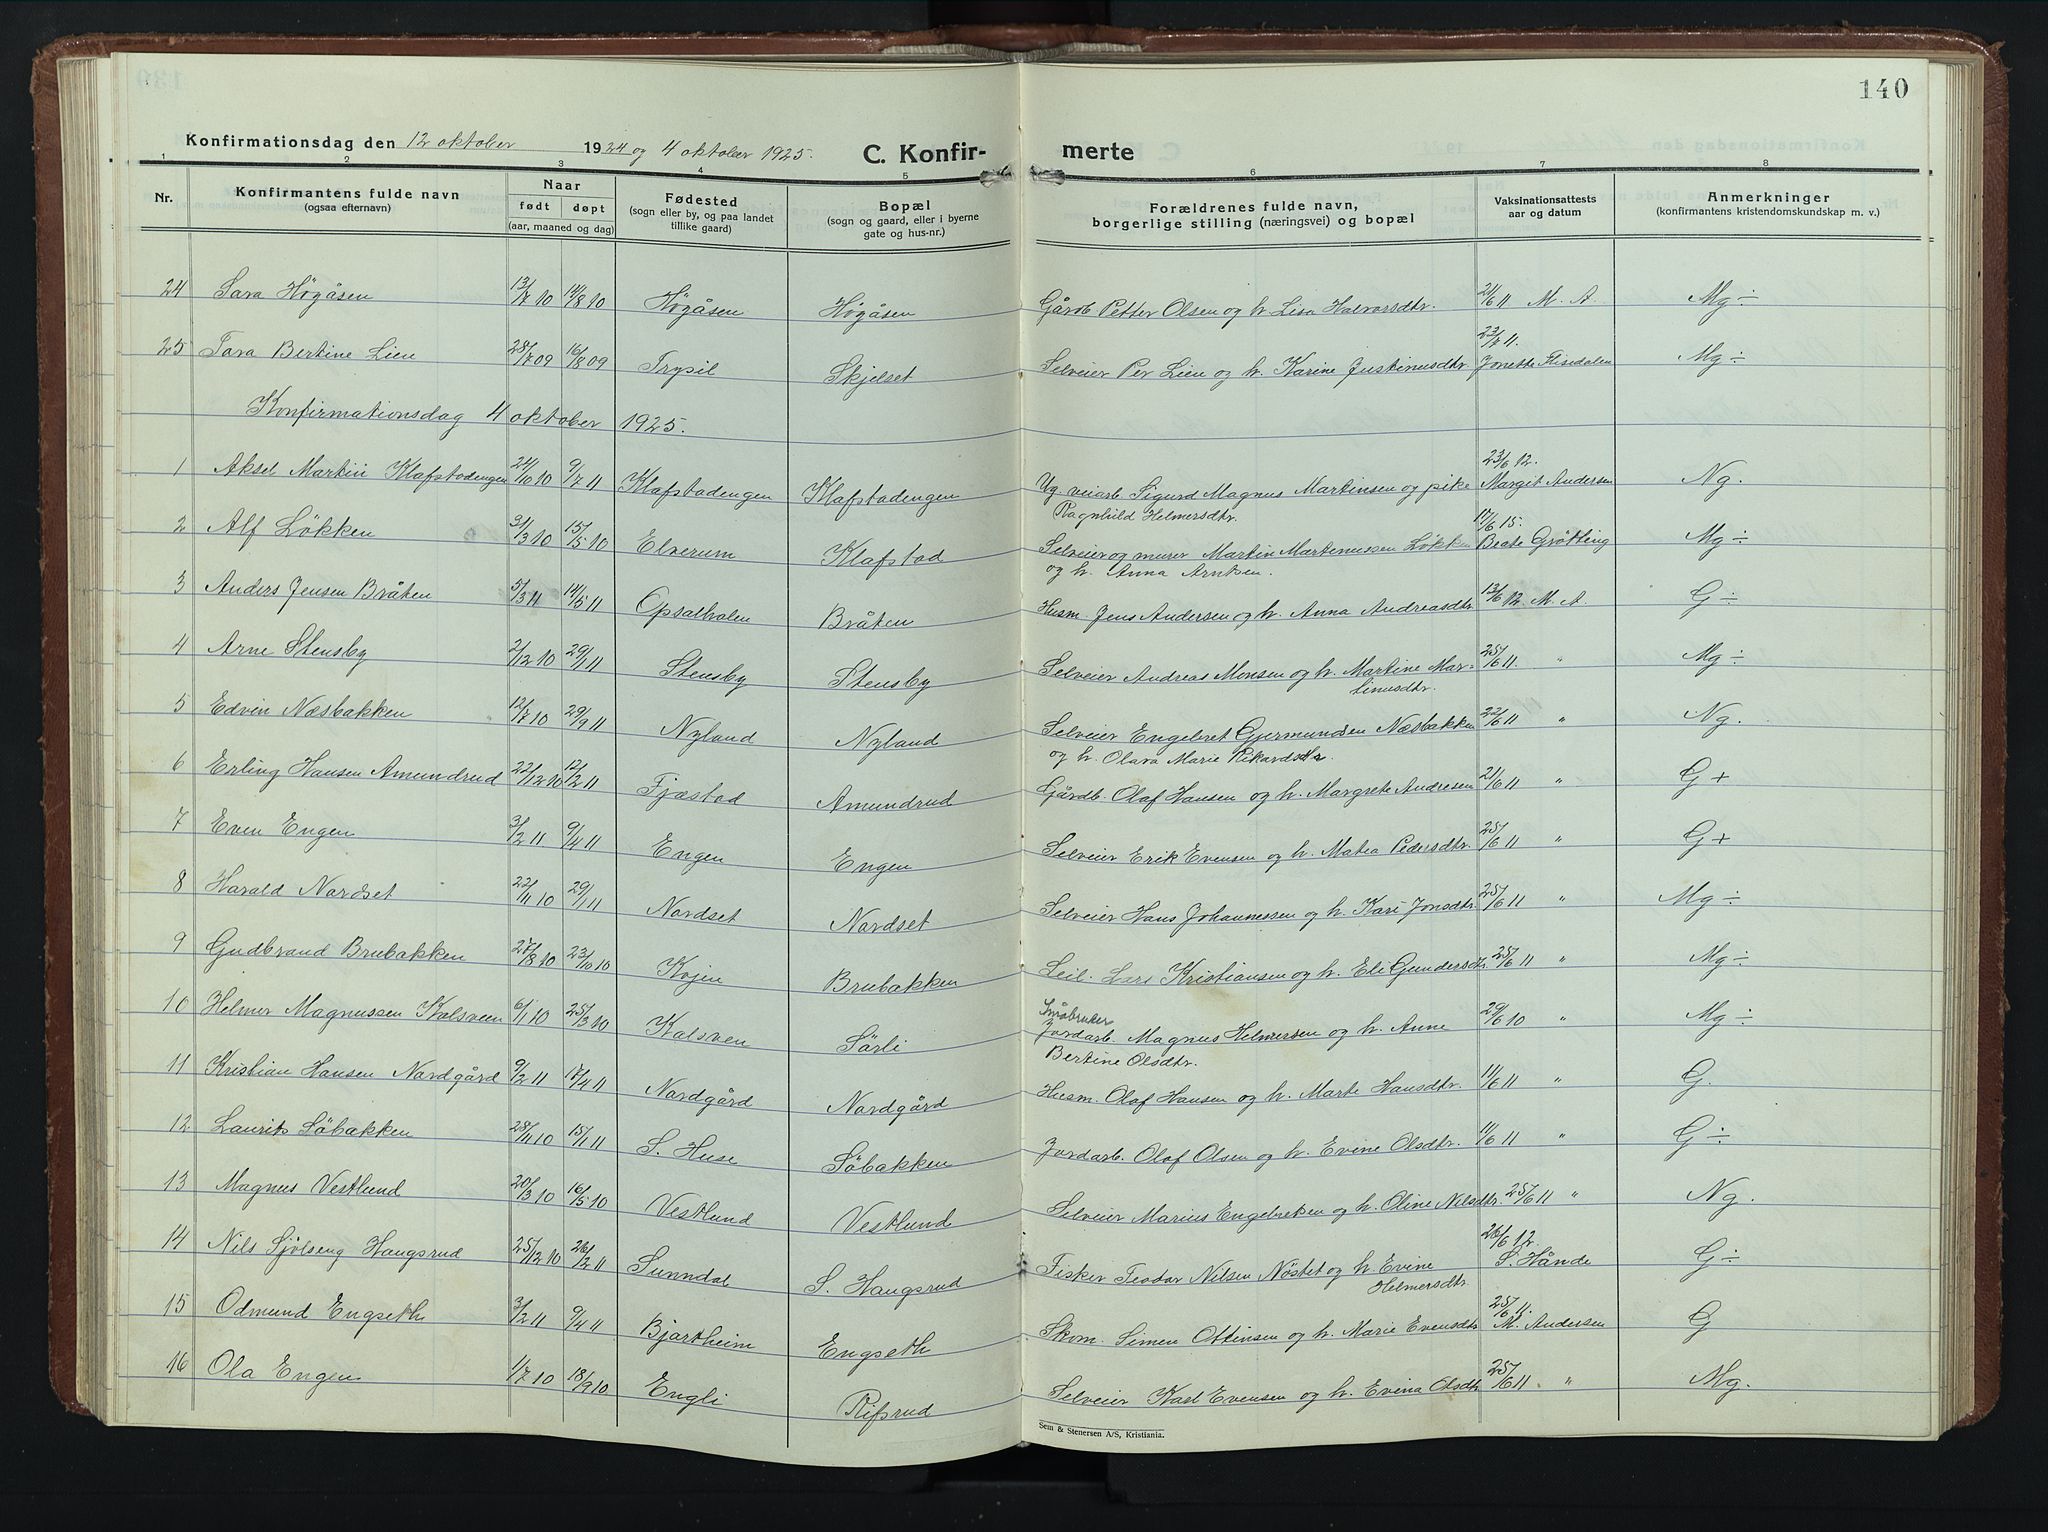 140
Konfirmationsdag den 12 oktober 1924 og 4 oktober 1925. C. Konfir- merte
1 2 3 4 5 6 7 8
Nr. Konfirmantens fulde navn (ogsaa efternavn) Naar født døpt (aar, maaned og dag) Fødested (sogn eller by, og paa landet tillike gaard) Bopæl (sogn og gaard, eller i byerne gate og hus-nr.) Forældrenes fulde navn, borgerlige stilling (næringsvei) og bopæl Vaksinationsattests aar og datum Anmerkninger (konfirmantens kristendomskundskap m. v.)
24 Sara Högåsen 13/7 10 14/8 10 Högåsen Högåsen Gårdb. Petter Olsen og h. Lisa Halvorsdtr. 21/6 11 M. A. Mg ÷
25 Tara Bertine Lien 28/7 09 16/8 09 Trysil Skjelset Selveier Per Lien og h. Karine Justinusdtr. 23/7 11. Jonette Flisedalen Mg ÷
Konfirmationsdag 4 oktober 1925.
1 Aksel Martin Klafstadengen 24/10 10 9/7 11 Klafstadengen Klafstadengen Ug. veiarb. Sigurd Magnus Martinsen og pike Ragnhild Helmersdtr. 23/6 12. Margit Andersen Ng.
2 Alf Lökken 31/3 10 15/5 10 Elverum Klafstad Selveier og murer Martin Martinussen Lökken og h. Anna Arntsen. 17/6 15. Beate Grötting Mg ÷
3 Anders Jensen Bråten 5/3 11 14/5 11 Opsalhalen Bråten Husm. Jens Andersen og h. Anna Andreasdtr. 13/6 12. M. A. G ÷
4 Arne Stensby 2/12 10 29/1 11 Stensby Stensby Selveier Andreas Monsen og h. Martine Martinusdtr. 25/6 11. " Mg ÷
5 Edvin Næsbakken 12/7 10 29/9 11 Nyland Nyland Selveier Engebret Gjermundsen Næsbakken og h. Olava Marie Rikardsdtr. 22/6 11 " Ng.
6 Erling Hansen Amundrud 22/12 10 12/2 11 Fjæstad Amundrud Gårdb. Olaf Hansen og h. Margrete Andresen 21/6 11 " G +
7 Even Engen 3/2 11 9/4 11 Engen Engen Selveier Erik Evensen og h. Matea Pedersdtr. 25/6 11 " G +
8 Harald Nordset 22/11 10 29/1 11 Nordset Nordset Selveier Hans Johannessen og h. Kari Jonsdtr. 25/6 11 " Mg ÷
9 Gudbrand Brubakken 27/8 10 23/10 10 Kojen Brubakken Leil. Lars Kristiansen og h. Eli Gundersdtr. 25/6 11 " Mg ÷
10 Helmer Magnussen Kalsveen 6/1 10 25/3 10 Kalsven Sörli Småbruker Jordarb. Magnus Helmersen og h. Anne Bertine Olsdtr. 29/6 10 " Mg ÷
11 Kristian Hansen Nordgård 9/2 11 17/4 11 Nordgård Nordgård Husm. Olaf Hansen og h. Marte Hansdtr. 11/6 11 " G.
12 Laurits Söbakken 28/11 10 15/1 11 S. Huse Söbakken Jordarb. Olaf Olsen og h. Evine Olsdtr. 11/6 11 " G ÷
13 Magnus Vestlund 20/3 10 16/5 10 Vestlund Vestlund Selveier Marius Engebretsen og h. Oline Nilsdtr. 25/6 11 " Ng.
14 Nils Sjölseng Haugsrud 25/12 10 26/2 11 Sunndal S. Haugsrud Fisker Teodor Nilsen Nöstet og h. Evine Helmersdtr. 26/6 12. S. Hånde G ÷
15 Odmund Engseth 3/2 11 9/4 11 Bjartheim Engseth Skom. Simen Ottinsen og h. Marie Evensdtr. 25/6 11. M. Andersen G
16 Ola Engen 1/7 10 18/9 10 Engli Rifsrud Selveier Karl Evensen og h. Evina Olsdtr. 25/6 11. " Mg.
Sem & Stenersen A/S, Kristiania.